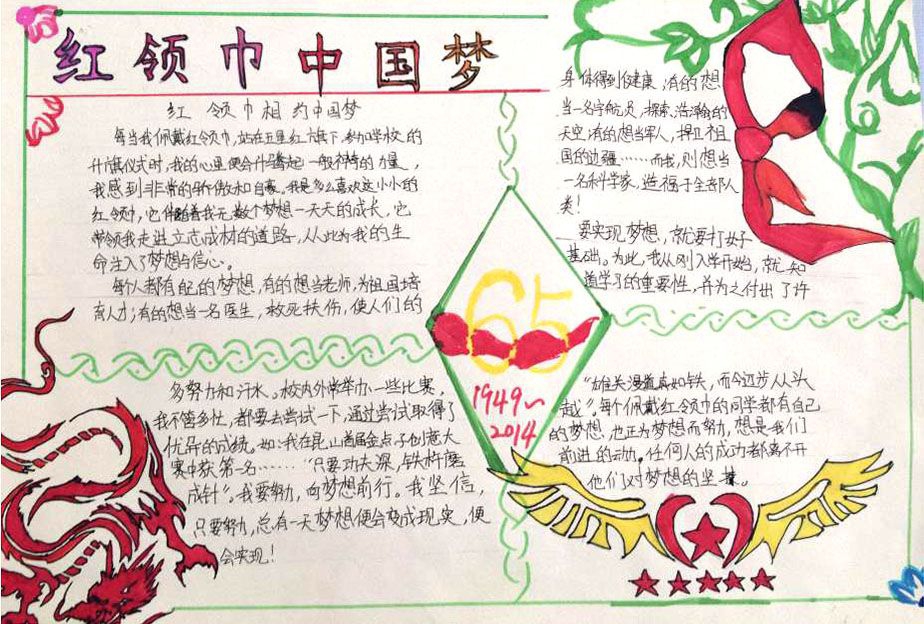 红领巾中国梦
红领巾相约中国梦
每当我佩戴红领巾,站在五星红旗下,参加学校的
升旗仪式时,我的心里便会升腾起一股神奇的力量,
我感到非常的骄傲和自豪。我是多么喜欢这小小的
红领巾,它伴随着我无数个梦想一天天的成长,它
带领我走进立志成材的道路,从此为我的生
命注入了梦想与信心。
每个人都有自己的梦想,有的想当老师,为祖国培
育人才;有的想当一名医生,救死扶伤,使人们的
身体得到健康,有的想
当一名宇航员,探索浩瀚的
天空;有的想当军人,捍卫祖
国的边疆……而我,则想当
一名科学家,造福于全部人
类!
要实现梦想,就要打好
基础。为此,我从刚入学开始,就知
道学习的重要性,并为之付出了许
65
1949~
2014
多努力和汗水。校内外常举办一些比赛,
我不管多忙,都要去尝试一下,通过尝试取得了
优异的成绩。如:我在昆山首届金点子创意大
赛中获第一名……“只要功夫深,铁杵磨
成针”。我要努力,向梦想前行。我坚信,
只要努力,总有一天梦想便会变成现实,便
会实现!
“雄关漫道真如铁,而今迈步从头
越”。每个佩戴红领巾的同学都有自己
的梦想,也正为梦想而努力,想是我们
前进的动力。任何人的成功都离不开
他们对梦想的坚